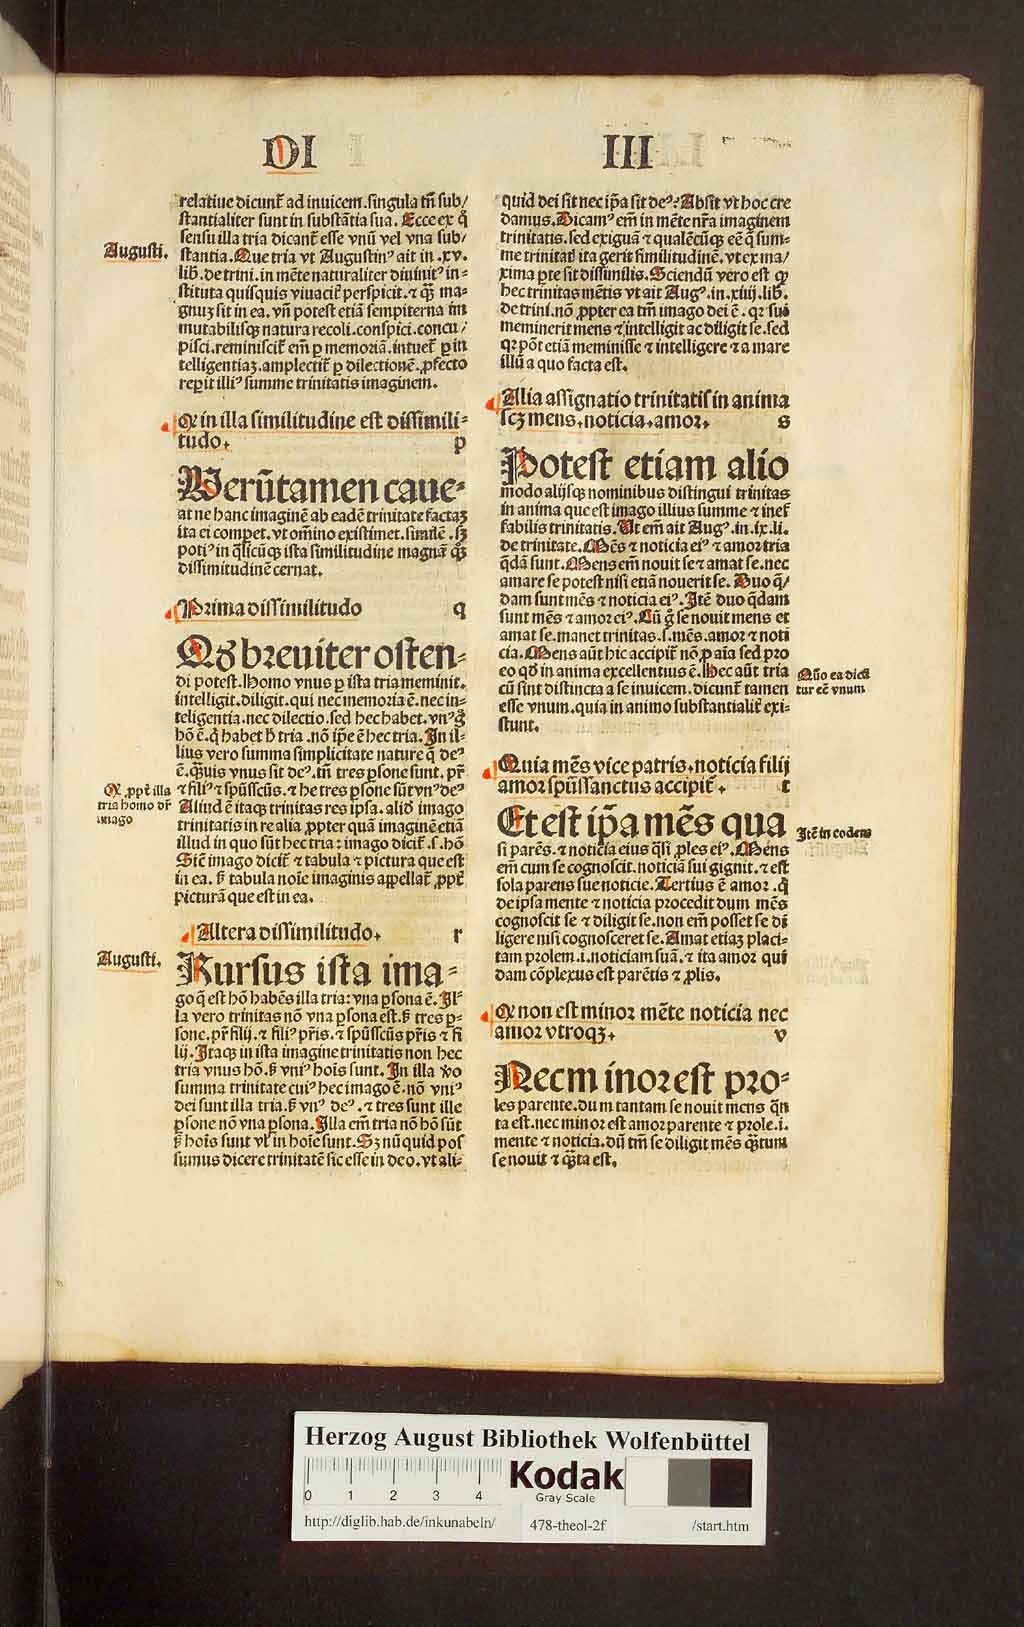 DI III
relatiue dicunt᷑ ad inuicem.singula tn̄ sub/
stantialiter sunt in substātia sua. Ecce ex q̊
sensu illa tria dicant᷑ esse vnū vel vna sub/
Augusti.
stantia. Que tria vt Augustinꝰ ait in .xv.
lib. de trini. in mēte naturaliter diuinitꝰ in-
stituta quisquis viuacit᷑ perspicit. ⁊ q̄ꝫ ma-
gnuꝫ sit in ea. vn̄ potest etiā sempiterna im
mutabilisqꝫ natura recoli. conspici. concu/
pisci. reminiscit᷑ em̄ ꝑ memoriā. intuet᷑ ꝑ in
telligentiaꝫ. amplectit᷑ ꝑ dilectionē. ꝓfecto
reꝑit illiꝰ summe trinitatis imaginem.
Qꝫ in illa similitudine est dissimili-
tudo. p
Uerūtamen caue-
at ne hanc imaginē ab eadē trinitate factaꝫ
ita ei compet. vt om̄ino existimet. similē. sꝫ
potiꝰ in q̄licūqꝫ ista similitudine magnā q̄ꝫ
dissimitudinē cernat.
Prima dissimilitudo q
Qđ breuiter osten-
di potest. Homo vnus ꝑ ista tria meminit.
intelligit. diligit. qui nec memoria ē. nec in-
teligentia. nec dilectio. sed hec habet. vnꝰ g̊
hō ē. q̇ habet h̄ tria .nō ip̄e ē hec tria. In il-
lius vero summa simplicitate nature q̄ deꝰ
ē. q̄uis vnus sit deꝰ. tn̄ tres ꝑsone sunt. pr̄
Qꝫ ꝓpt᷑ illa
tria homo dr̄
imago
⁊ filiꝰ ⁊ spūsscūs. ⁊ he tres ꝑsone sūt vnꝰ deꝰ
Aliud ē itaqꝫ trinitas res ipsa. aliđ imago
trinitatis in re alia ꝓpter quā imaginē etiā
illud in quo sūt hec tria: imago dicit᷑. s. hō
Sic̄ imago dicit᷑ ⁊ tabula ⁊ pictura que est
in ea. s̄ tabula noīe imaginis appellat᷑ ꝓpt᷑
picturā que est in ea.
Altera dissimilitudo. r
Augusti.
Rursus ista ima-
go q̄ est hō habēs illa tria: vna ꝑsona ē. Il-
la vero trinitas nō vna ꝑsona est. s̄ tres ꝑ-
sone. pr̄ filij. ⁊ filiꝰ pr̄is. ⁊ spūsscūs pr̄is ⁊ fi
lij. Itaqꝫ in ista imagine trinitatis non hec
tria vnus hō. s̄ vniꝰ hoīs sunt. In illa v̊o
summa trinitate cuiꝰ hec imago ē. nō vniꝰ
dei sunt illa tria. s̄ vnꝰ deꝰ. ⁊ tres sunt ille
ꝑsone nō vna ꝑsona. Illa em̄ tria nō hō sūt
s̄ hoīs sunt vl̓ in hoīe sunt. Sꝫ nū quid pos
sumus dicere trinitatē sic esse in deo. vt ali-
quid dei sit nec ip̄a sit deꝰ? Absit vt hoc cre
damus. Dicamꝰ em̄ in mēte nr̄a imaginem
trinitatis. sed exiguā ⁊ qualēcūqꝫ eē q̄ sum-
me trinitatꝭ ita gerit similitudinē. vt ex ma/
xima ꝑte sit dissimilis. Sciendū vero est ꝙ
hec trinitas mētis vt ait Augꝰ. in .xiiij. lib.
de trini. nō ꝓpter ea tm̄ imago dei ē. qꝛ sui
meminerit mens ⁊ intelligit ac diligit se. sed
qꝛ pōt etiā meminisse ⁊ intelligere ⁊ a mare
illū a quo facta est.
Alia assignatio trinitatis in anima
scꝫ mens. noticia. amor. s
Potest etiam alio
modo alijsqꝫ nominibus distingui trinitas
in anima que est imago illius summe ⁊ inef
fabilis trinitatis. Ut em̄ ait Augꝰ. in .ix. li.
de trinitate. Mēs ⁊ noticia eiꝰ ⁊ amor tria
q̄dā sunt. Mens em̄ nouit se ⁊ amat se. nec
amare se potest nisi etiā nouerit se. Duo q̄/
dam sunt mēs ⁊ noticia eiꝰ. Itē duo q̄dam
sunt mēs ⁊ amor eiꝰ. Cū g̊ se nouit mens et
amat se. manet trinitas. s. mēs. amor ⁊ noti
cia. Mens aūt hic accipit᷑ nō ꝓ aīa sed pro
eo qđ in anima excellentius ē. Hec aūt tria
cū sint distincta a se inuicem. dicunt᷑ tamen
Quō ea dicū
tur eē vnum
esse vnum. quia in animo substantialit᷑ exi-
stunt.
Quia mēs vice patris. noticia filij
amor spūssanctus accipit᷑. t
Et est ip̄a mēs qua
Itē in eodem
si parēs. ⁊ noticia eius q̄si ꝓles eiꝰ. Mens
em̄ cum se cognoscit. noticiā sui gignit. ⁊ est
sola parens sue noticie. Tertius ē amor. q̇
de ipsa mente ⁊ noticia procedit dum mēs
cognoscit se ⁊ diligit se. non em̄ posset se di
ligere nisi cognosceret se. Amat etiaꝫ placi-
tam prolem .i. noticiam suā. ⁊ ita amor qui
dam cōplexus est parētis ⁊ ꝓlis.
Qꝫ non est minor mēte noticia nec
amor vtroqꝫ. v
Necm inor est pro-
les parente. du m tantam se nouit mens q̄n
ta est. nec minor est amor parente ⁊ prole .i.
mente ⁊ noticia. dū tm̄ se diligit mēs q̄ꝫtum
se nouit ⁊ q̄ꝫta est.
Herzog August Bibliothek Wolfenbüttel
0 1 2 3 4
Kodak
Gray Scale
http://diglib.hab.de/inkunabeln/ 478-theol-2f /start.htm